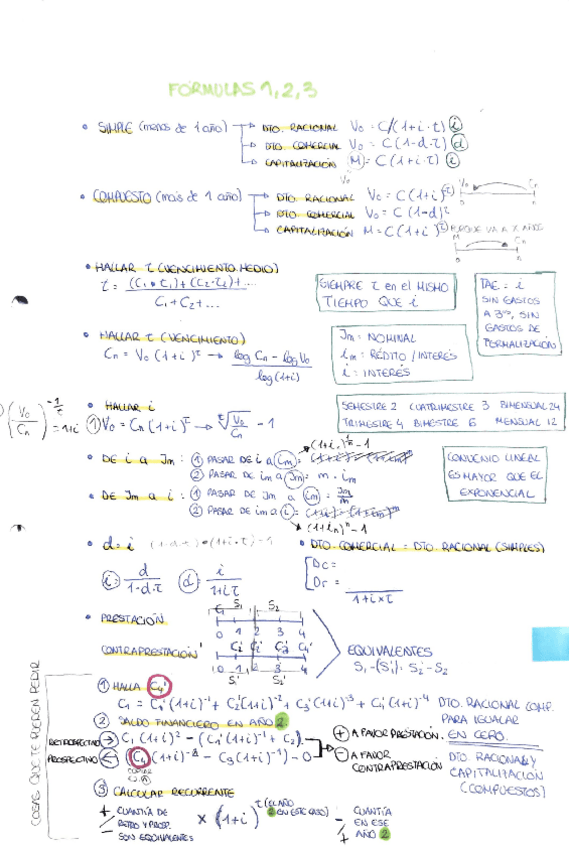 FÓRMULAS 1,2,3
• SIMPLE (menos de 1 año) → DTO. RACIONAL V₀ = C/(1+i·τ) (i)
→ DTO. COMERCIAL V₀ = C(1-d·τ) (d)
→ CAPITALIZACIÓN M = C(1+i·τ) (i)
V₀
• COMPUESTO (más de 1 año) → DTO. RACIONAL V₀ = C(1+i)
→ DTO. COMERCIAL V₀ = C(1-d)^τ
→ CAPITALIZACIÓN M = C(1+i)^τ
V₀ Cn
0 n
M Cn
0 n
• HALLAR τ (VENCIMIENTO MEDIO)
τ = ((C₁·τ₁)+(C₂·τ₂)+...
C₁+C₂+...
SIEMPRE τ en el MISMO
TIEMPO QUE i
TAE = i
SIN GASTOS
A 3º, SIN
GASTOS DE
• HALLAR τ (VENCIMIENTO)
Cn = V₀(1+i)^τ → log Cn - log V₀
log(1+i)
Jm = NOMINAL
im = RÉDITO / INTERÉS
i = INTERÉS
• HALLAR i
(V₀/Cn)^-1/τ = 1+i
① V₀ = Cn(1+i)^τ → ^τ√(V₀/Cn) - 1
SEMESTRE 2 CUATRIMESTRE 3 BIMENSUAL 24
TRIMESTRE 4 BIMESTRE 6 MENSUAL 12
• DE i a Jm: ① PASAR DE i a (im) = (1+i)^1/m - 1
② PASAR DE im a (Jm) = m · im
• DE Jm a i: ① PASAR DE Jm a (im) = Jm/m
② PASAR DE im a (i) =
(1+im)^m - 1
CONVENIO LINEAL
ES MAYOR QUE EL
EXPONENCIAL
• d = i (1-d·τ)·(1+i·τ) = 1
(i) = d / 1-d·τ (d) = i / 1+i·τ
• DTO. COMERCIAL = DTO. RACIONAL (SIMPLES)
Dc =
Dr =
1+i×τ
• PRESTACIÓN
S₁ S₂
0 1 2 3 4
CONTRAPRESTACIÓN'
C₁' C₂' C₃' C₄'
0 1 2 3 4
S₁' S₂'
EQUIVALENTES
S₁-(S₁') = S₂'-S₂
COSAS QUE TE PUEDEN PEDIR
① HALLA C₄'
C₁ = C₁'(1+i)⁻¹ + C₂'(1+i)⁻² + C₃'(1+i)⁻³ + C₄'(1+i)⁻⁴
DTO. RACIONAL COMP.
PARA IGUALAR
EN CERO.
② SALDO FINANCIERO EN AÑO 2.
RETROSPECTIVO → C₁(1+i)² - (C₁'(1+i)⁻¹ + C₂').
PROSPECTIVO ← (C₄'(1+i)⁻² - C₃(1+i)⁻¹) - 0
+ A FAVOR PRESTACIÓN.
- A FAVOR
CONTRAPRESTACIÓN
DTO. RACIONAL Y
CAPITALIZACIÓN
(COMPUESTOS)
③ CALCULAR RECURRENTE
+/- CUANTÍA DE
RETRO Y PROSP.
SON EQUIVALENTES
× (1+i)^τ (EL AÑO
2 EN ESTE CASO)
-/+ CUANTÍA
EN ESE
AÑO 2